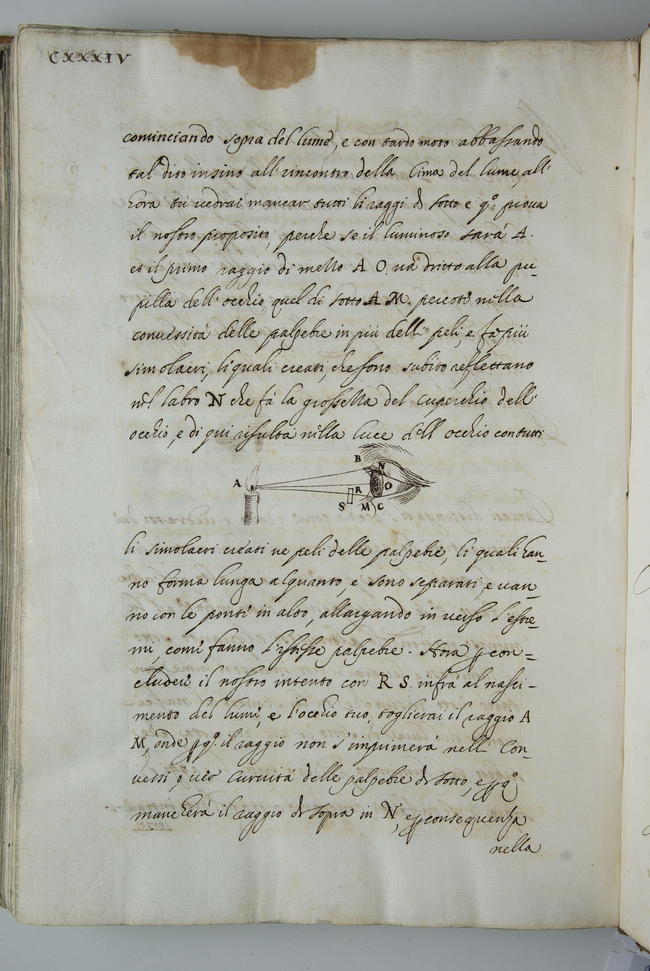 CXXXIV
cominciando sopra del lume, e con tardo moto abbassando
tal dito insino all'rincontro della Cima del lume, all'
hora tu vedrai mancar tutti li raggi di sotto e q.º prova
il nostro proposito, perche se il luminoso sarà A.
et il primo raggio di mezzo A O. và dritto alla pu-
pilla dell'occhio, quel di sotto A M. percote nella
convessità delle palpebre in più delli peli, e fa più
simolacri, li quali creati, che sono subito reflettano
nel labro N che fà la grossezza del cuperchio dell'
occhio, e di qui risulta nella luce dell'occhio con tutti
A B N O R S M C
li simolacri creati ne peli delle palpebre, li quali han-
no forma lunga alquanto, e sono separati, e van-
no con le ponti in alto, allargando in verso l'estre-
mi, comi fanno l'istesse palpebre. Hora ꝑ con-
cluderi il nostro intento con R S. infrà al nasci-
mento del lumi, e l'occhio tuo, toglierai il raggio A
M, onde ꝑ q.º il raggio non s'impumerà nelli Con-
vessi ò ver Curvità delle palpebre di sotto, e ꝑ q.º
mancherà il raggio di sopra in N, e ꝑ consequenza
nella